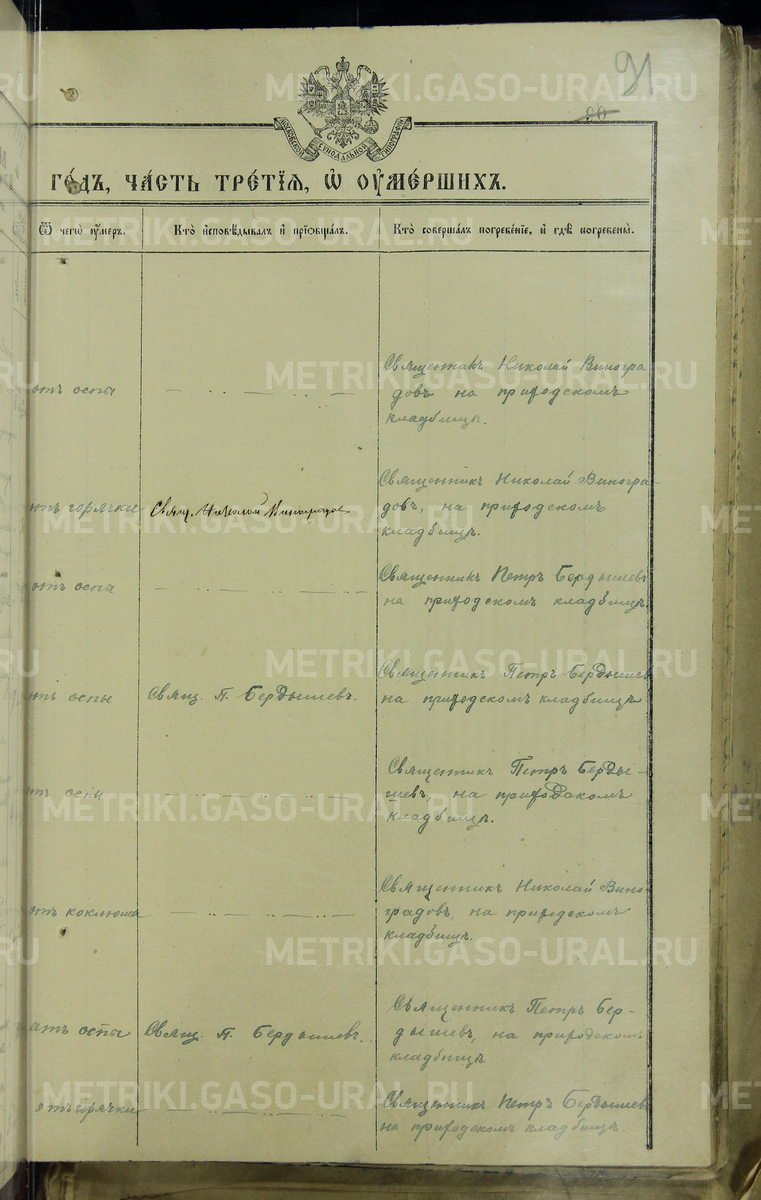 91
90
МОСКОВСКОЙ СѴНОДАЛЬНОЙ ТИПОГРАФІИ
го́дъ, ча́сть тре́тїѧ, ѡ҆ оу҆ме́ршихъ.
Ѿ чегѡ̀ оу҆́меръ.
Кто̀ и҆сповѣ́дывалъ и҆ прїѡбща́лъ.
Кто̀ соверша́лъ погребе́нїе, и҆ гдѣ̀ погребены̀.
отъ оспы
Священникъ Николай Виногра
довъ на приходскомъ
кладбищѣ.
отъ горячки
Свящ. Николай Виноградов
Священникъ Николай Виногра-
довъ, на приходскомъ
кладбищѣ.
отъ оспы
Священникъ Петръ Бердышевъ
на приходскомъ кладбищѣ.
отъ оспы
Свящ. П. Бердышевъ.
Священникъ Петръ Бердышев
на приходскомъ кладбищѣ
отъ оспы
Священникъ Петръ Берды-
шевъ, на приходскомъ
кладбищѣ.
отъ коклюша
Священникъ Николай Вино-
градовъ, на приходскомъ
кладбищѣ.
отъ оспы
Свящ. П. Бердышевъ.
Священникъ Петръ Бер-
дышевъ, на приходскомъ
кладбищѣ.
отъ горячки
Священникъ Петръ Бердышев
на приходскомъ кладбищѣ.
METRIKI.GASO-URAL.RU